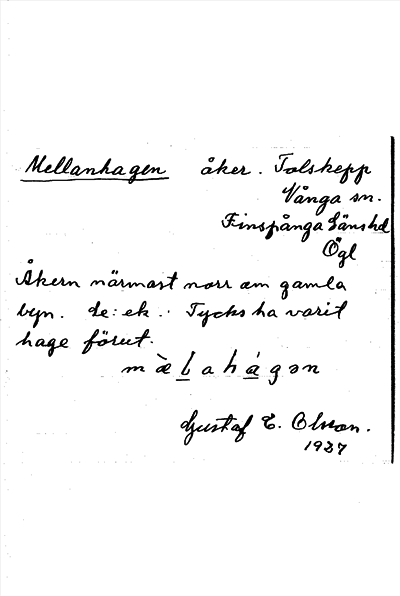 Mellanhagen åker. Tolskepp
Vånga sn.
Finspånga länshd
Ögl
Åkern närmast norr om gamla
byn. de: ek. Tycks ha varit
hage förut.
mæ̀lahágən
Gustaf E. Olsson.
1937